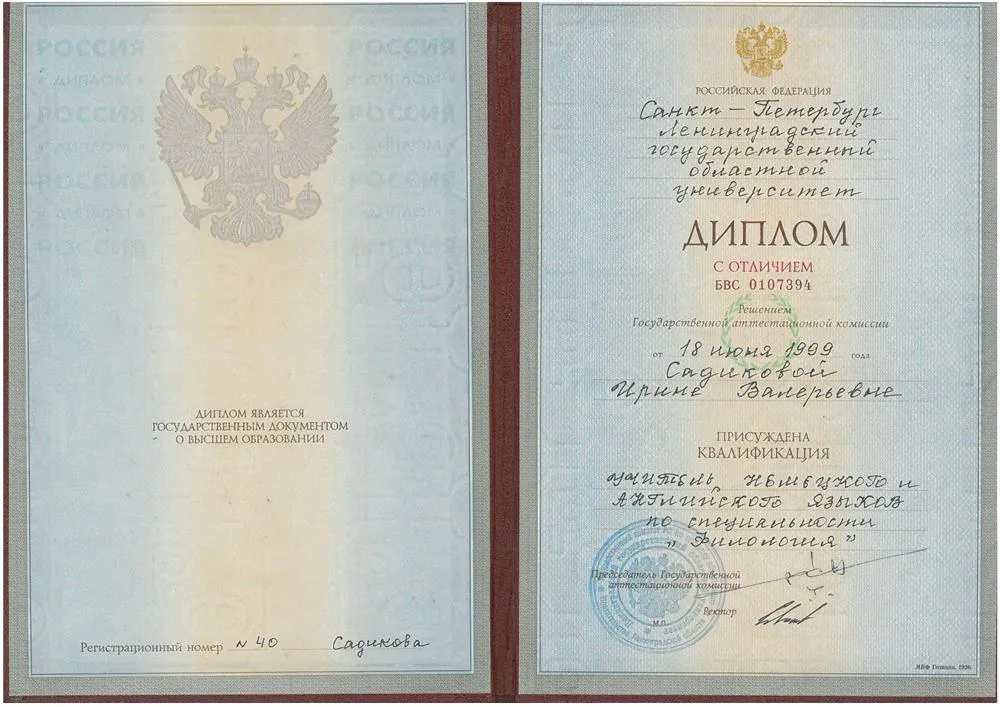 РОССИЯ РОССИЯ
ДИПЛОМ ДИПЛОМ
РОССИЯ РОССИЯ
ДИПЛОМ ДИПЛОМ
РОССИЯ РОССИЯ
ДИПЛОМ ДИПЛОМ
РОССИЯ РОССИЯ
ДИПЛОМ ЯВЛЯЕТСЯ
ГОСУДАРСТВЕННЫМ ДОКУМЕНТОМ
О ВЫСШЕМ ОБРАЗОВАНИИ
Регистрационный номер N 40 Садикова
РОССИЙСКАЯ ФЕДЕРАЦИЯ
Санкт-Петербург
Ленинградский
государственный
областной
университет
ДИПЛОМ
С ОТЛИЧИЕМ
БВС 0107394
Решением
Государственной аттестационной комиссии
от 18 июня 1999 года
Садиковой
Ирине Валерьевне
ПРИСУЖДЕНА
КВАЛИФИКАЦИЯ
учитель немецкого и
английского языков
по специальности
„Филология”
Председатель Государственной
аттестационной комиссии
Ректор
М.П.
МПФ Гознака. 1996.